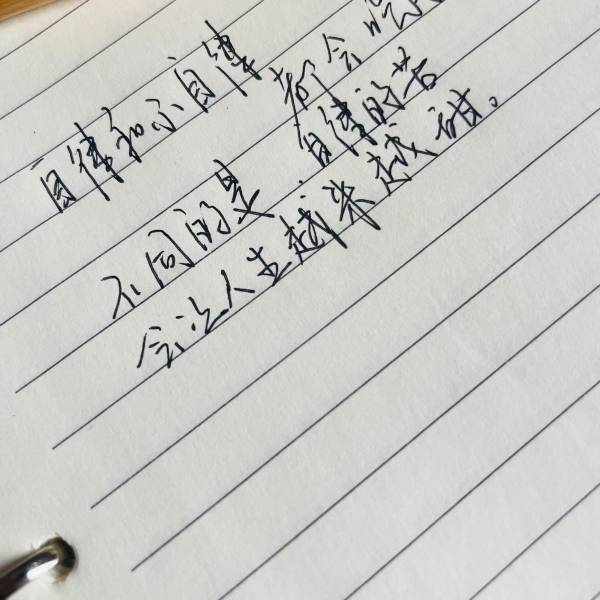 自律和不自律 都会吃
不同的是,自律的苦
会让人生越来越甜。